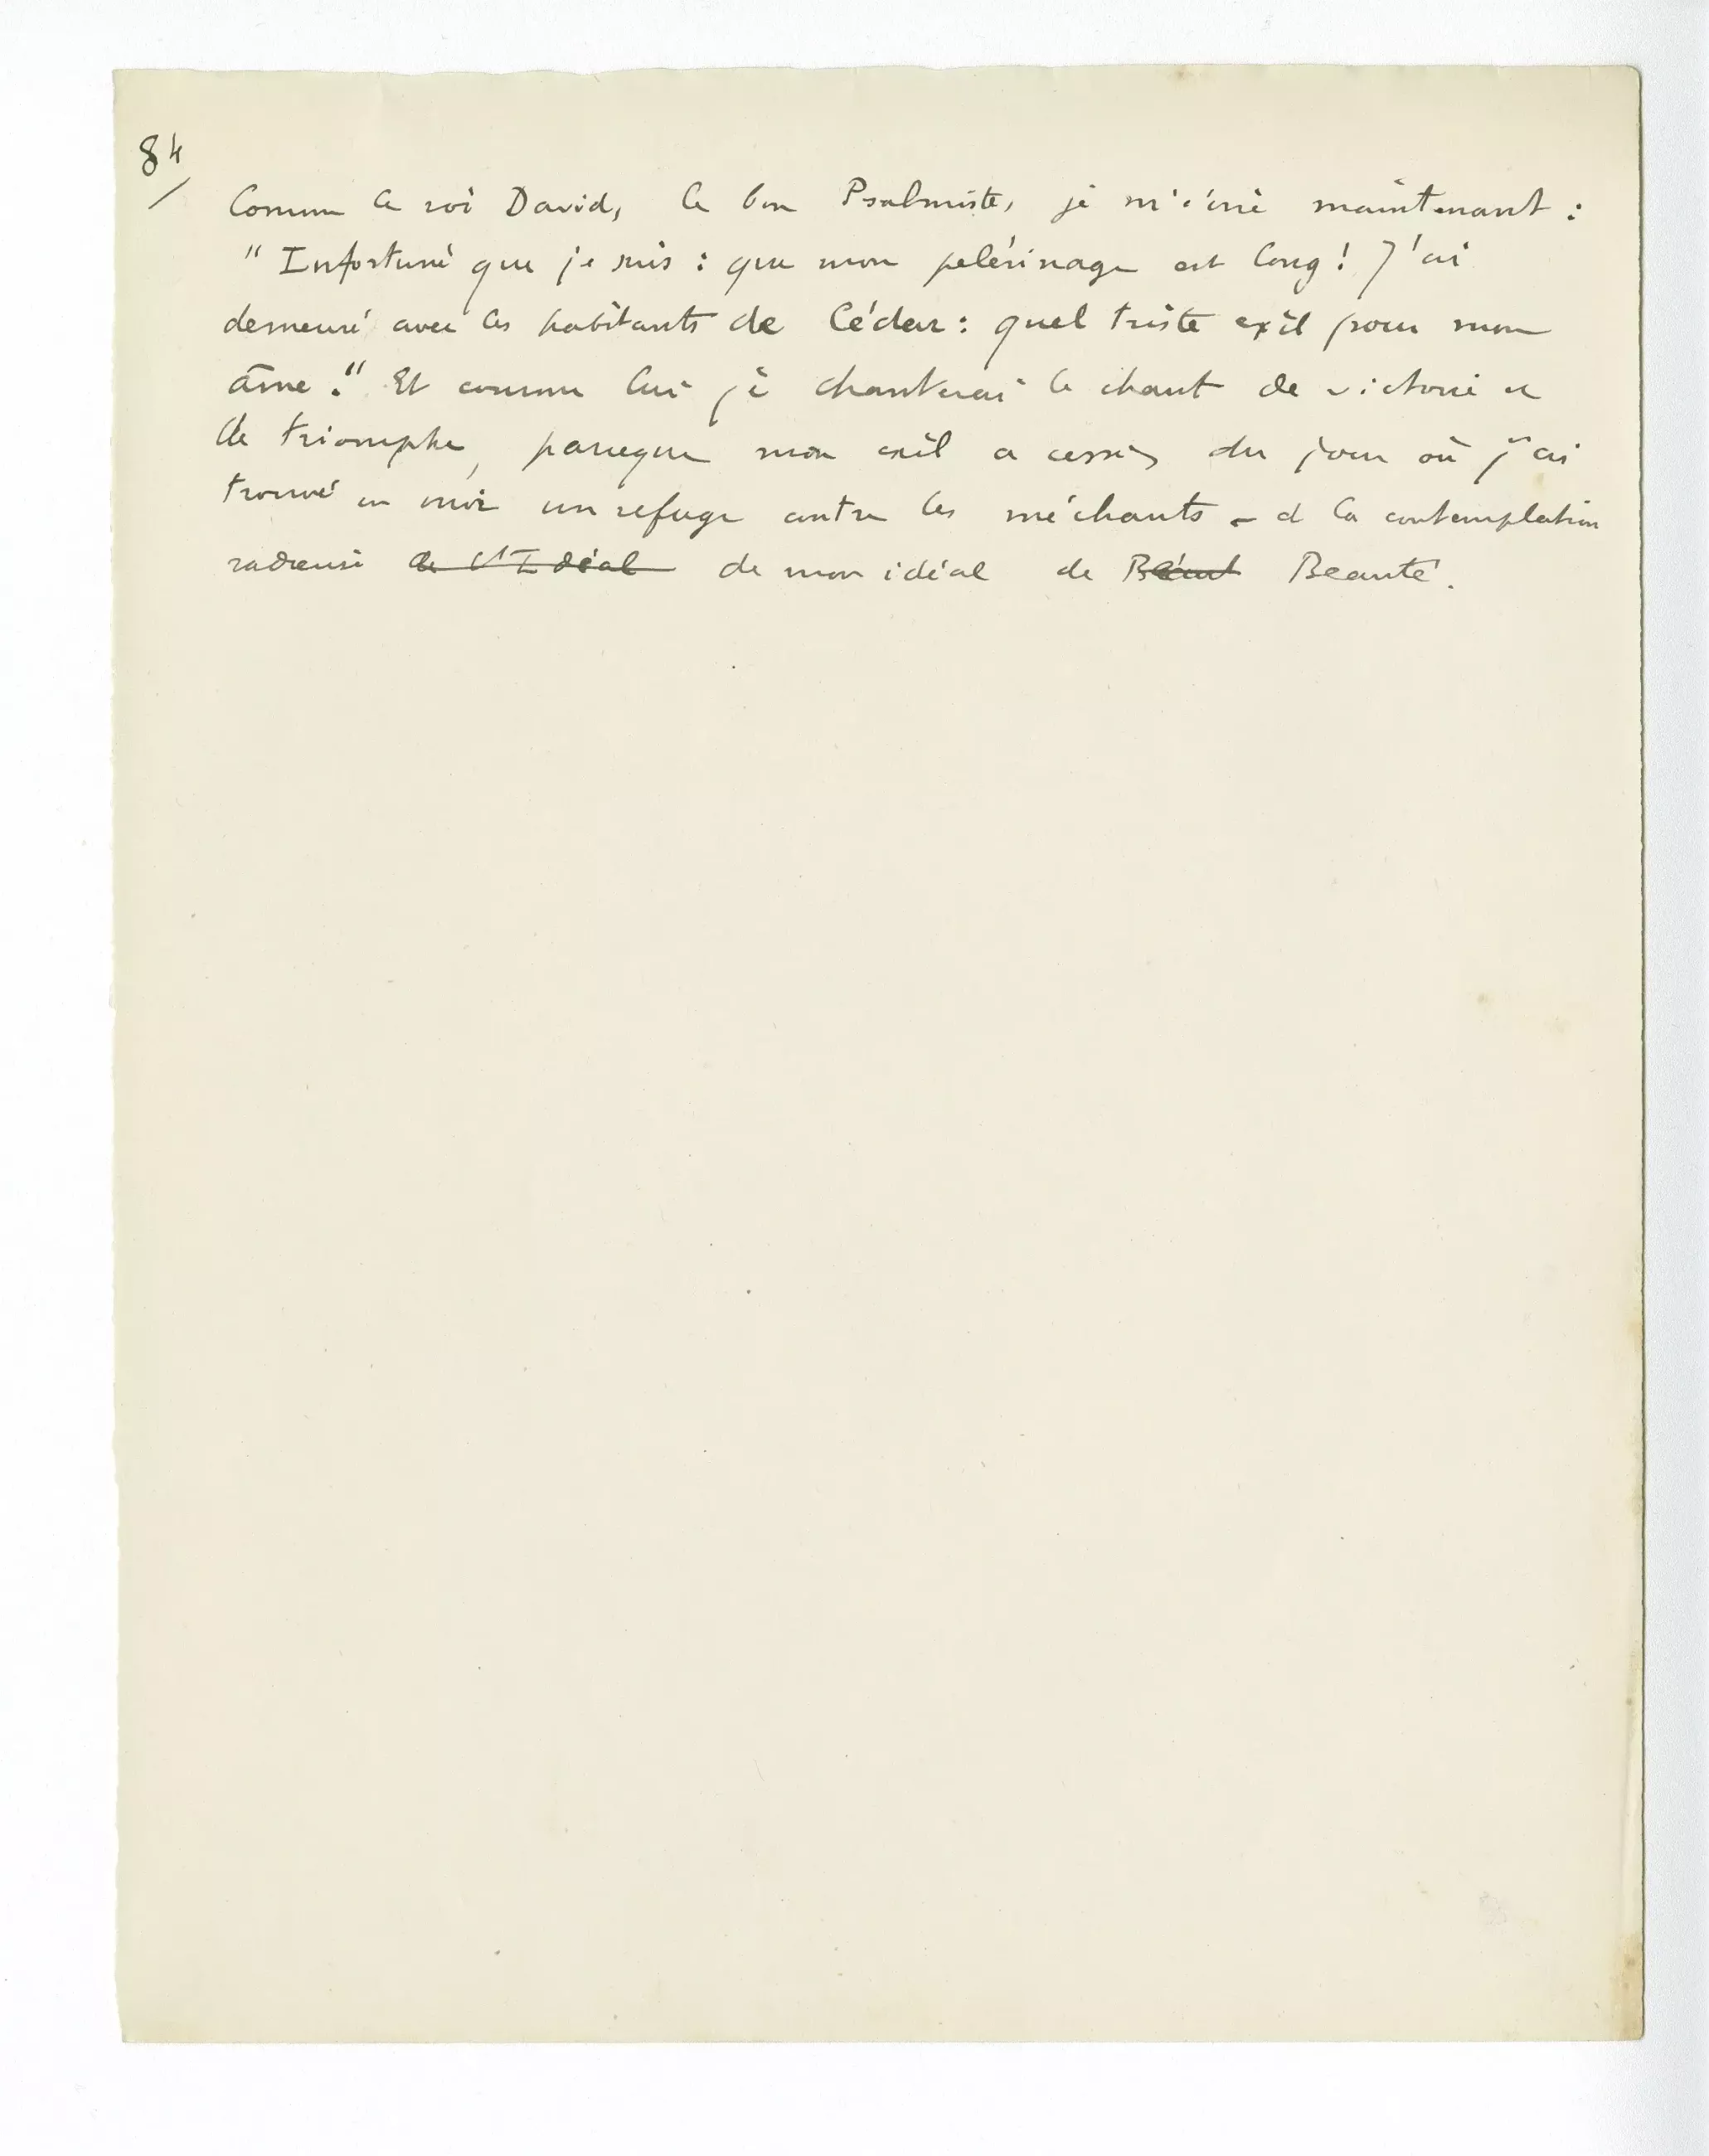 84
Comme le roi David, le bon Psalmiste, je m'écrie maintenant :
" Infortuné que je suis : que mon pelérinage est long ! J'ai
demeuré avec les habitants de Cédar : quel triste exil pour mon
âme ! " Et comme lui je chanterai le chant de victoire et
de triomphe, parceque mon exil a cessé, du jour où j'ai
trouvé en moi un refuge contre les méchants - et la contemplation
radieuse de l'Idéal de mon idéal de Beauté.